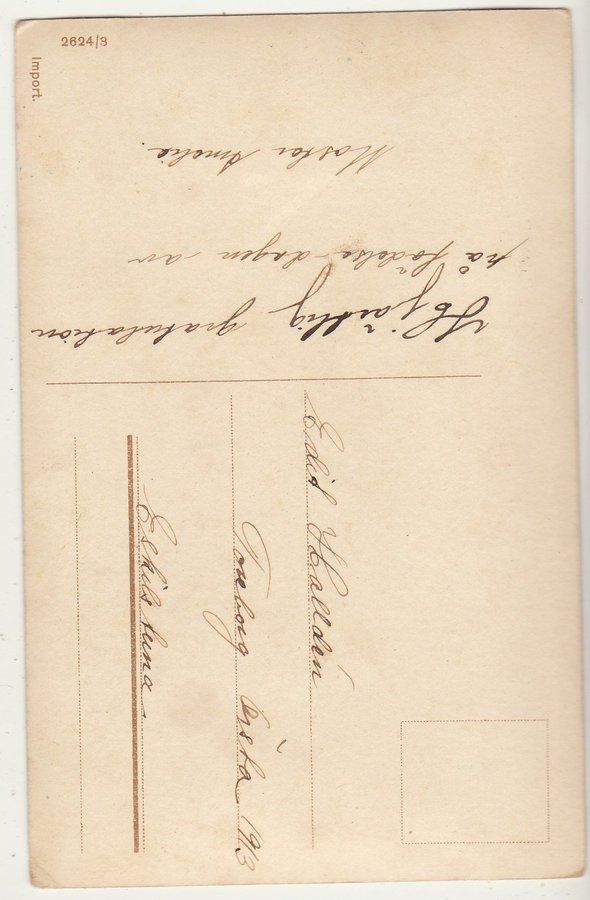 2624/3
Import.
Hjärtlig gratulation
på födelse-dagen av
Moster Amelie.
Edit Halldén
Torsborg Årsta 1913
Eskilstuna.